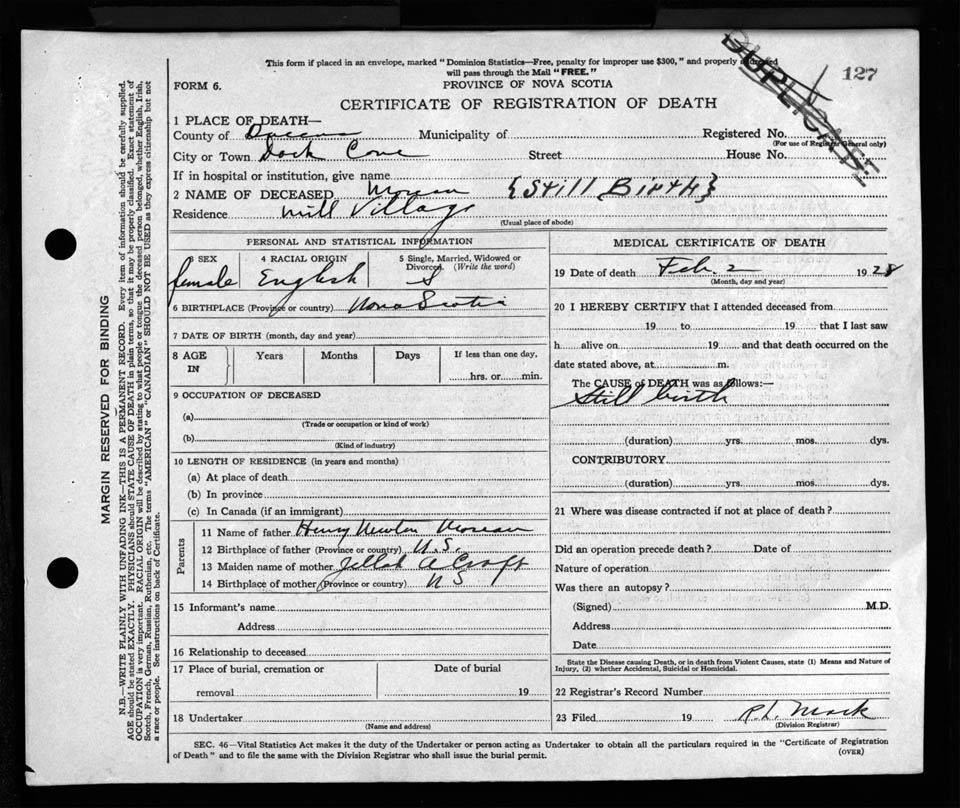 This form if placed in an envelope, marked "Dominion Statistics—Free, penalty for improper use $300," and properly addressed
will pass through the Mail "FREE."
DUPLICATE
127
FORM 6.
PROVINCE OF NOVA SCOTIA
CERTIFICATE OF REGISTRATION OF DEATH
1 PLACE OF DEATH—
County of Queens Municipality of Registered No.
(For use of Registrar General only)
City or Town Cove Street House No.
If in hospital or institution, give name
2 NAME OF DECEASED {Still Birth}
Residence Mill Village
(Usual place of abode)
PERSONAL AND STATISTICAL INFORMATION
SEX 4 RACIAL ORIGIN 5 Single, Married, Widowed or
Divorced. (Write the word)
female English S
6 BIRTHPLACE (Province or country) Nova Scotia
7 DATE OF BIRTH (month, day and year)
8 AGE IN Years Months Days If less than one day,
hrs. or min.
9 OCCUPATION OF DECEASED
(a)
(Trade or occupation or kind of work)
(b)
(Kind of industry)
10 LENGTH OF RESIDENCE (in years and months)
(a) At place of death
(b) In province
(c) In Canada (if an immigrant)
Parents
11 Name of father Henry Newton
12 Birthplace of father (Province or country) N.S.
13 Maiden name of mother A Croft
14 Birthplace of mother (Province or country) N S
15 Informant's name
Address
16 Relationship to deceased
17 Place of burial, cremation or Date of burial
removal 19
18 Undertaker
(Name and address)
MEDICAL CERTIFICATE OF DEATH
19 Date of death Feb. 2 1928
(Month, day and year)
20 I HEREBY CERTIFY that I attended deceased from
19 to 19 that I last saw
h alive on 19 and that death occurred on the
date stated above, at m.
The CAUSE of DEATH was as follows:—
Still birth
(duration) yrs. mos. dys.
CONTRIBUTORY
(duration) yrs. mos. dys.
21 Where was disease contracted if not at place of death?
Did an operation precede death? Date of
Nature of operation
Was there an autopsy?
(Signed) M.D.
Address
Date
State the Disease causing Death, or in death from Violent Causes, state (1) Means and Nature of
Injury, (2) whether Accidental, Suicidal or Homicidal.
22 Registrar's Record Number
23 Filed 19 R.L. Mack
(Division Registrar)
SEC. 46—Vital Statistics Act makes it the duty of the Undertaker or person acting as Undertaker to obtain all the particulars required in the "Certificate of Registration
of Death" and to file the same with the Division Registrar who shall issue the burial permit.
(OVER)
MARGIN RESERVED FOR BINDING
N.B.—WRITE PLAINLY WITH UNFADING INK—THIS IS A PERMANENT RECORD. Every item of information should be carefully supplied.
AGE should be stated EXACTLY. PHYSICIANS should STATE CAUSE OF DEATH in plain terms, so that it may be properly classified. Exact statement of
OCCUPATION is very important. RACIAL ORIGIN will be described by stating to what people or tongue the deceased person belonged, whether English, Irish,
Scotch, French, German, Russian, Ruthenian, etc. The terms "AMERICAN" or "CANADIAN" SHOULD NOT BE USED as they express citizenship but not
a race or people. See instructions on back of Certificate.